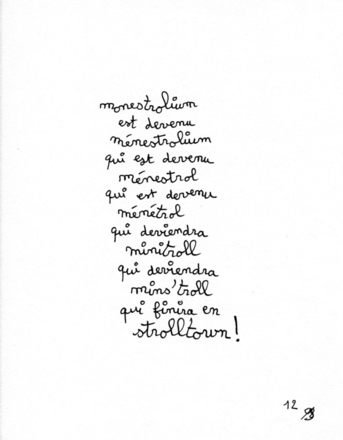 monestrolium
est devenu
ménestrolium
qui est devenu
ménestrol
qui est devenu
ménétrol
qui deviendra
minitroll
qui deviendra
mins'troll
qui finira en
strolltown!
12